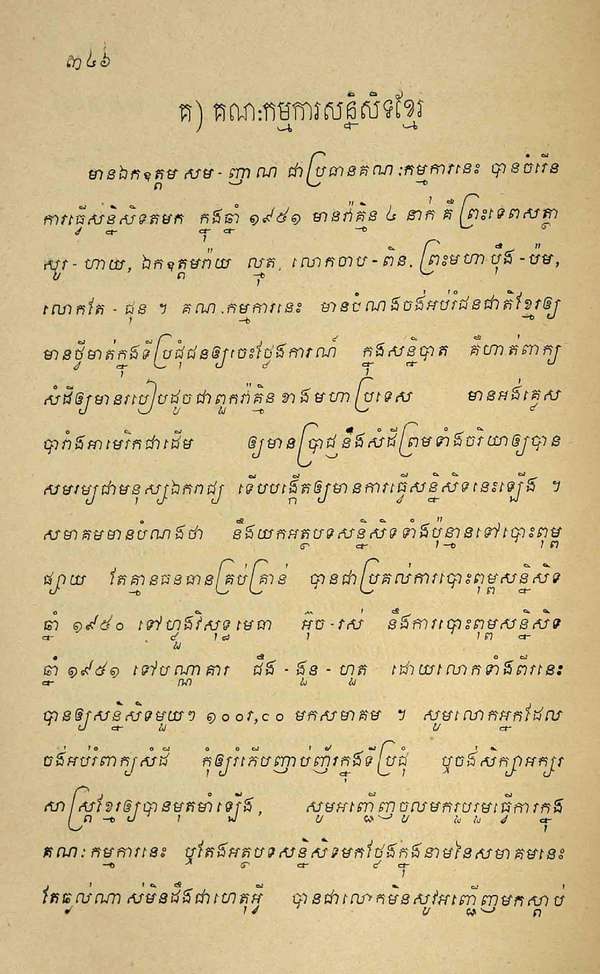 ៣៤៦
គ) គណៈកម្មការសន្និសិទខ្មែរ
មានឯកឧត្តម សម-ញាណ ជាប្រធានគណៈកម្មការនេះ បានចំរើន
ការធ្វើសន្និសិទតមក ក្នុងឆ្នាំ ១៩៥១ មានវ៉ាគ្មិន ៤ នាក់ គឺ ព្រះទេពសត្ថា
សូរ-ហាយ, ឯកឧត្តមវ៉ាយ ល្មុត, លោកចាប-ពិន, ព្រះមហាប៉ឹង-ប៉ម,
លោកតែ-ជុន ។ គណៈកម្មការនេះ មានបំណងចង់អប់រំជនជាតិខ្មែរឲ្យ
មានថ្វីមាត់ក្នុងទីប្រជុំជនឲ្យចេះថ្លែងការណ៍ ក្នុងសន្និបាត គឺហាត់ពាក្យ
សំដីឲ្យមានរបៀបដូចជាពួកវ៉ាគ្មិន ខាងមហាប្រទេស មានអង់គ្លេស
បារាំងអាមេរិកជាដើម ឲ្យមានប្រាជ្ញនឹងសំដីព្រមទាំងចរិយាឲ្យបាន
សមរម្យជាមនុស្សឯករាជ្យ ទើបបង្កើតឲ្យមានការធ្វើសន្និសិទនេះឡើង ។
សមាគមមានបំណងថា នឹងយកអត្ថបទសន្និសិទទាំងប៉ុន្មានទៅបោះពុម្ព
ផ្សាយ តែគ្មានធនធានគ្រប់គ្រាន់ បានជាប្រគល់ការបោះពុម្ពសន្និសិទ
ឆ្នាំ ១៩៥០ ទៅហ្លួងវិសុទ្ធមេធា អ៊ុច-រស់ នឹងការបោះពុម្ពសន្និសិទ
ឆ្នាំ ១៩៥១ ទៅបណ្ណាគារ ជឹង-ងួន-ហួត ដោយលោកទាំងពីរនេះ
បានឲ្យសន្និសិទមួយៗ ១០០រ,០០ មកសមាគម ។ សូមលោកអ្នកដែល
ចង់អប់រំពាក្យសំដី កុំឲ្យរំភើបញាប់ញ័រក្នុងទីប្រជុំ ឬចង់សិក្សាអក្សរ
សាស្ត្រខ្មែរឲ្យបានមុតមាំឡើង, សូមអញ្ជើញចូលមករួបរួមធ្វើការក្នុង
គណៈកម្មការនេះ ឬតែងអត្ថបទសន្និសិទមកថ្លែងក្នុងនាមនៃសមាគមនេះ
តែឆ្ងល់ណាស់មិនដឹងជាហេតុអ្វី បានជាលោកមិនសូវអញ្ជើញមកស្តាប់